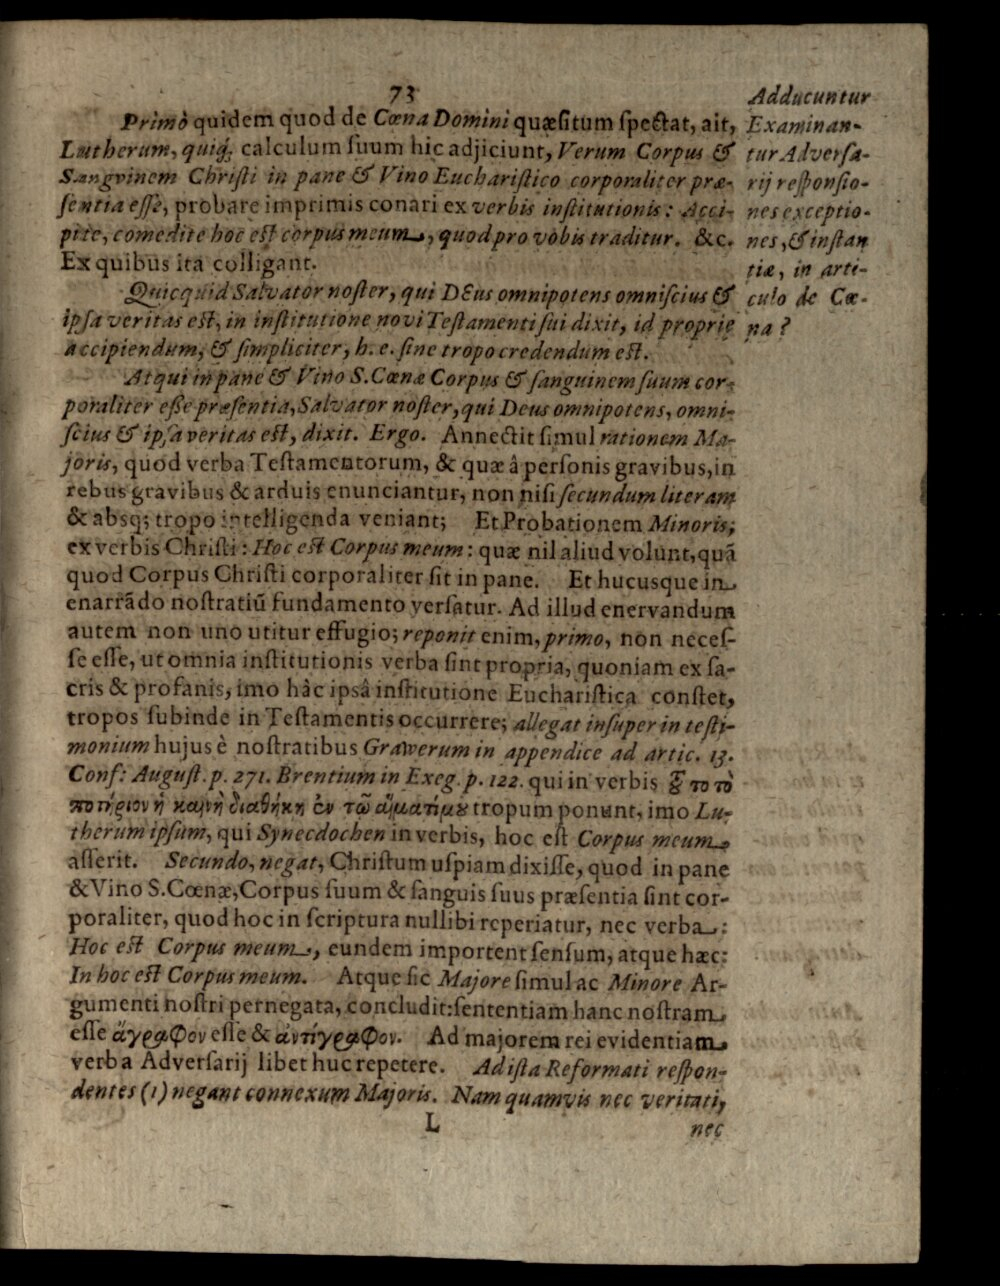 73
Primò quidem quod de Cœna Domini quæsitum spectat, ait,
Lutherum, quiq; calculum suum hic adjiciunt, Verum Corpus &
Sangvinem Christi in pane & Vino Eucharistico corporaliter præ-
sentia esse, probare imprimis conari ex verbis institutionis: Acci-
pite, comedite hoc est corpus meum, quod pro vobis traditur. &c.
Ex quibus ita colligant.
Quicquid Salvator noster, qui DEus omnipotens omniscius &
ipsa veritas est, in institutione novi Testamenti sui dixit, id propriè
accipiendum, & simpliciter, h. e. sine tropo credendum est.
Atqui in pane & Vino S. Cœnæ Corpus & sanguinem suum cor-
poraliter esse præsentia, Salvator noster, qui Deus omnipotens, omni-
scius & ipsa veritas est, dixit. Ergo. Annectit simul rationem Ma-
joris, quod verba Testamentorum, & quæ â personis gravibus, in
rebus gravibus & arduis enunciantur, non nisi secundum literam
& absq; tropo intelligenda veniant; Et Probationem Minoris,
ex verbis Christi: Hoc est Corpus meum: quæ nil aliud volunt, quã
quod Corpus Christi corporaliter sit in pane. Et hucusque in
enarrãdo nostratiũ fundamento versatur. Ad illud enervandum
autem non uno utitur effugio; reponit enim, primo, non neces-
se esse, ut omnia institutionis verba sint propria, quoniam ex sa-
cris & profanis, imo hâc ipsâ institutione Eucharistica constet,
tropos subinde in Testamentis occurrere; allegat insuper in testi-
monium hujus è nostratibus Grawerum in appendice ad artic. 13.
Conf: August. p. 271. Brentium in Exeg. p. 122. qui in verbis τȣ͂το τὸ
ποτήριον ἡ καινὴ διαθήκη ἐν τῶ αἵματί μȣ tropum ponunt, imo Lu-
therum ipsum, qui Synecdochen in verbis, hoc est Corpus meum,
asserit. Secundo, negat, Christum uspiam dixisse, quod in pane
& Vino S. Cœnæ, Corpus suum & sanguis suus præsentia sint cor-
poraliter, quod hoc in scriptura nullibi reperiatur, nec verba:
Hoc est Corpus meum, eundem importent sensum, atque hæc:
In hoc est Corpus meum. Atque sic Majore simul ac Minore Ar-
gumenti nostri pernegata, concludit: sententiam hanc nostram
esse ἄγραφον esse & ἀντίγραφον. Ad majorem rei evidentiam
verba Adversarij libet huc repetere. Ad ista Reformati respon-
dentes (1) negant connexum Majoris. Nam quamvis nec veritati,
L
nec
Adducuntur
Examinan-
tur Adversa-
rij responsio-
nes exceptio-
nes, & instan
tiæ, in arti-
culo de Cœ-
na?